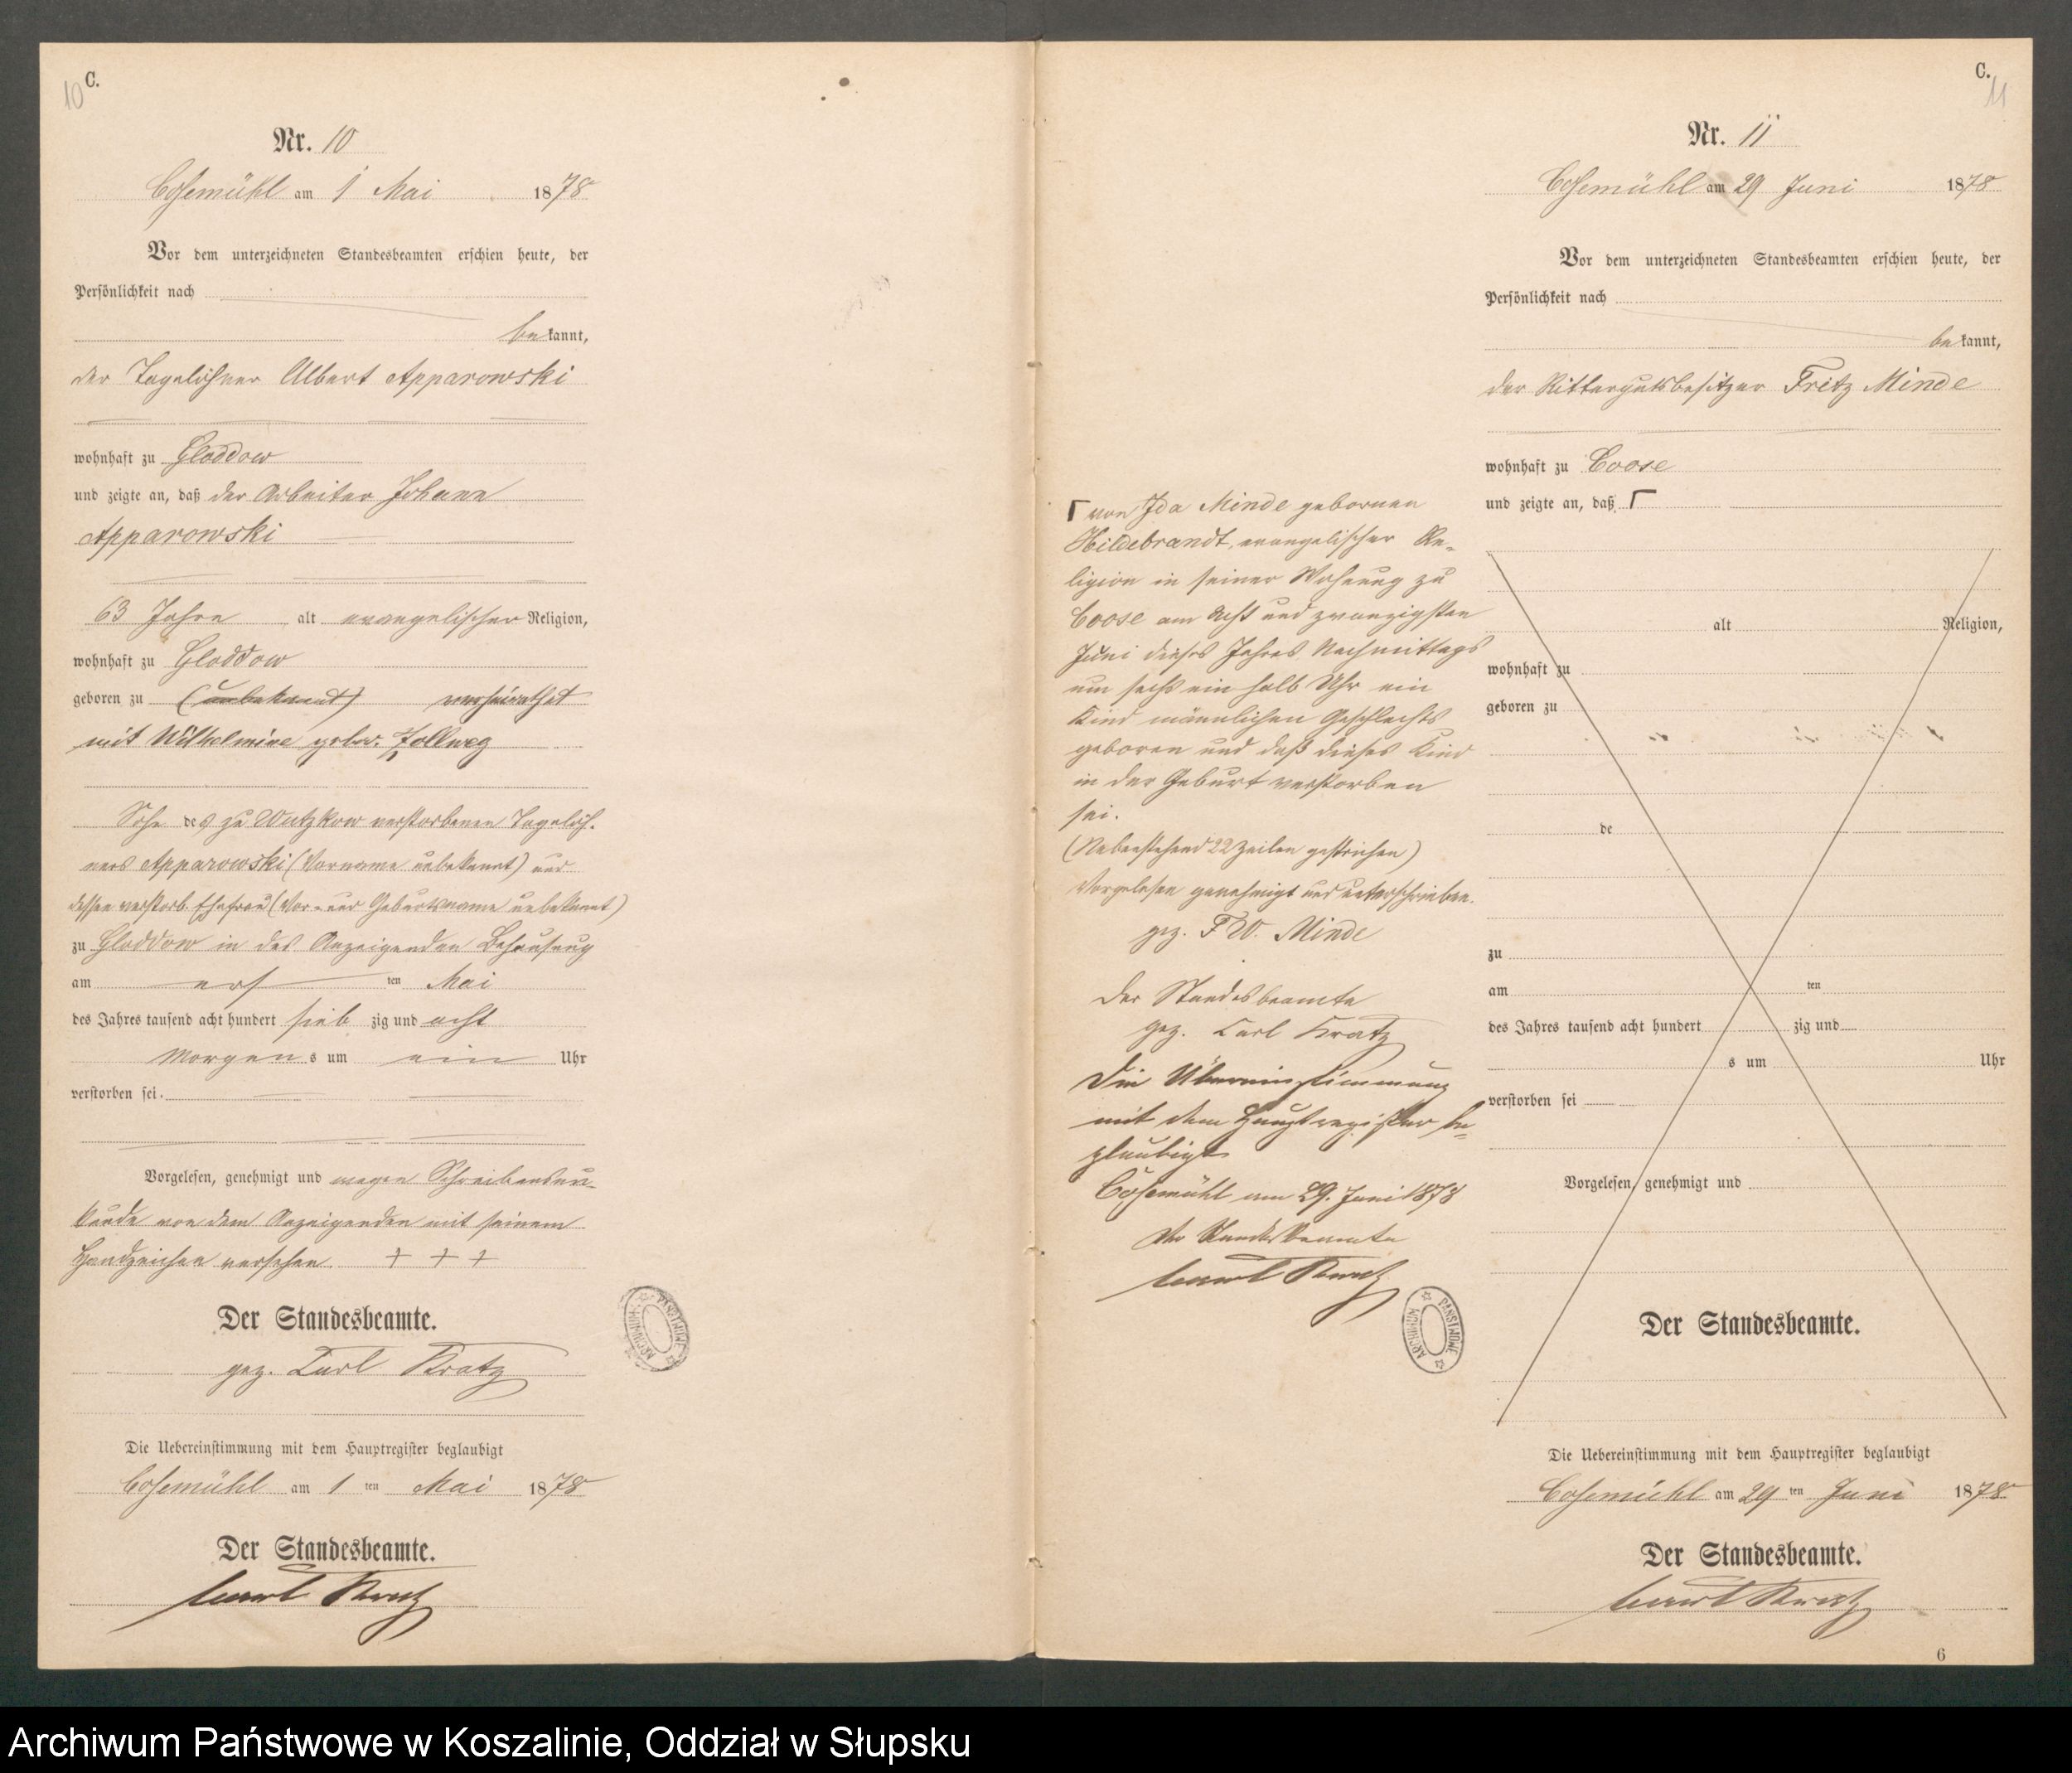 C.
10
Nr. 10
Cosemühl am 1 Mai 1878
Vor dem unterzeichneten Standesbeamten erschien heute, der
Persönlichkeit nach
bekannt,
der Tagelöhner Albert Apparowski
wohnhaft zu Gloddow
und zeigte an, daß der Arbeiter Johann
Apparowski
63 Jahre alt evangelischer Religion,
wohnhaft zu Gloddow
geboren zu (unbekannt) verheirathet
mit Wilhelmine gebor.
Sohn des zu Wutzkow verstorbenen Tagelöh-
ners Apparowski (Vorname unbekannt) und
dessen verstorb. Ehefrau (Vor- und Geburtsname unbekannt)
zu Gloddow in des Anzeigenden Behausung
am ersten Mai
des Jahres tausend acht hundert siebzig und acht
Morgens um ein Uhr
verstorben sei.
Vorgelesen, genehmigt und wegen Schreibensun-
kunde von dem Anzeigenden mit seinem
Handzeichen versehen + + +
Der Standesbeamte.
gez. Carl Kratz
Die Uebereinstimmung mit dem Hauptregister beglaubigt
Cosemühl am 1 ten Mai 1878
Der Standesbeamte.
Carl Kratz
ARCHIWUM PAŃSTWOWE
C.
11
Nr. 11
Cosemühl am 29 Juni 1878
Vor dem unterzeichneten Standesbeamten erschien heute, der
Persönlichkeit nach
bekannt,
der Rittergutsbesitzer Fritz Minde
wohnhaft zu Coose
und zeigte an, daß Γ
Γ von Ida Minde gebornen
Hildebrandt, evangelischer Re-
ligion in seiner Wohnung zu
Coose am acht und zwanzigsten
Juni dieses Jahres Nachmittags
um sechs ein halb Uhr ein
Kind männlichen Geschlechts
geboren und daß dieses Kind
in der Geburt verstorben
sei.
(Nebenstehend 22 Zeilen gestrichen)
Vorgelesen genehmigt und unterschrieben.
gez. F W. Minde
Der Standesbeamte
gez. Carl Kratz
Die Übereinstimmung
mit dem Hauptregister be-
glaubigt
Cosemühl am 29. Juni 1878
Der Standesbeamte
Carl Kratz
ARCHIWUM PAŃSTWOWE
alt Religion,
wohnhaft zu
geboren zu
de
zu
am ten
des Jahres tausend acht hundert zig und
s um Uhr
verstorben sei
Vorgelesen, genehmigt und
Der Standesbeamte.
Die Uebereinstimmung mit dem Hauptregister beglaubigt
Cosemühl am 29 ten Juni 1878
Der Standesbeamte.
Carl Kratz
6
Archiwum Państwowe w Koszalinie, Oddział w Słupsku